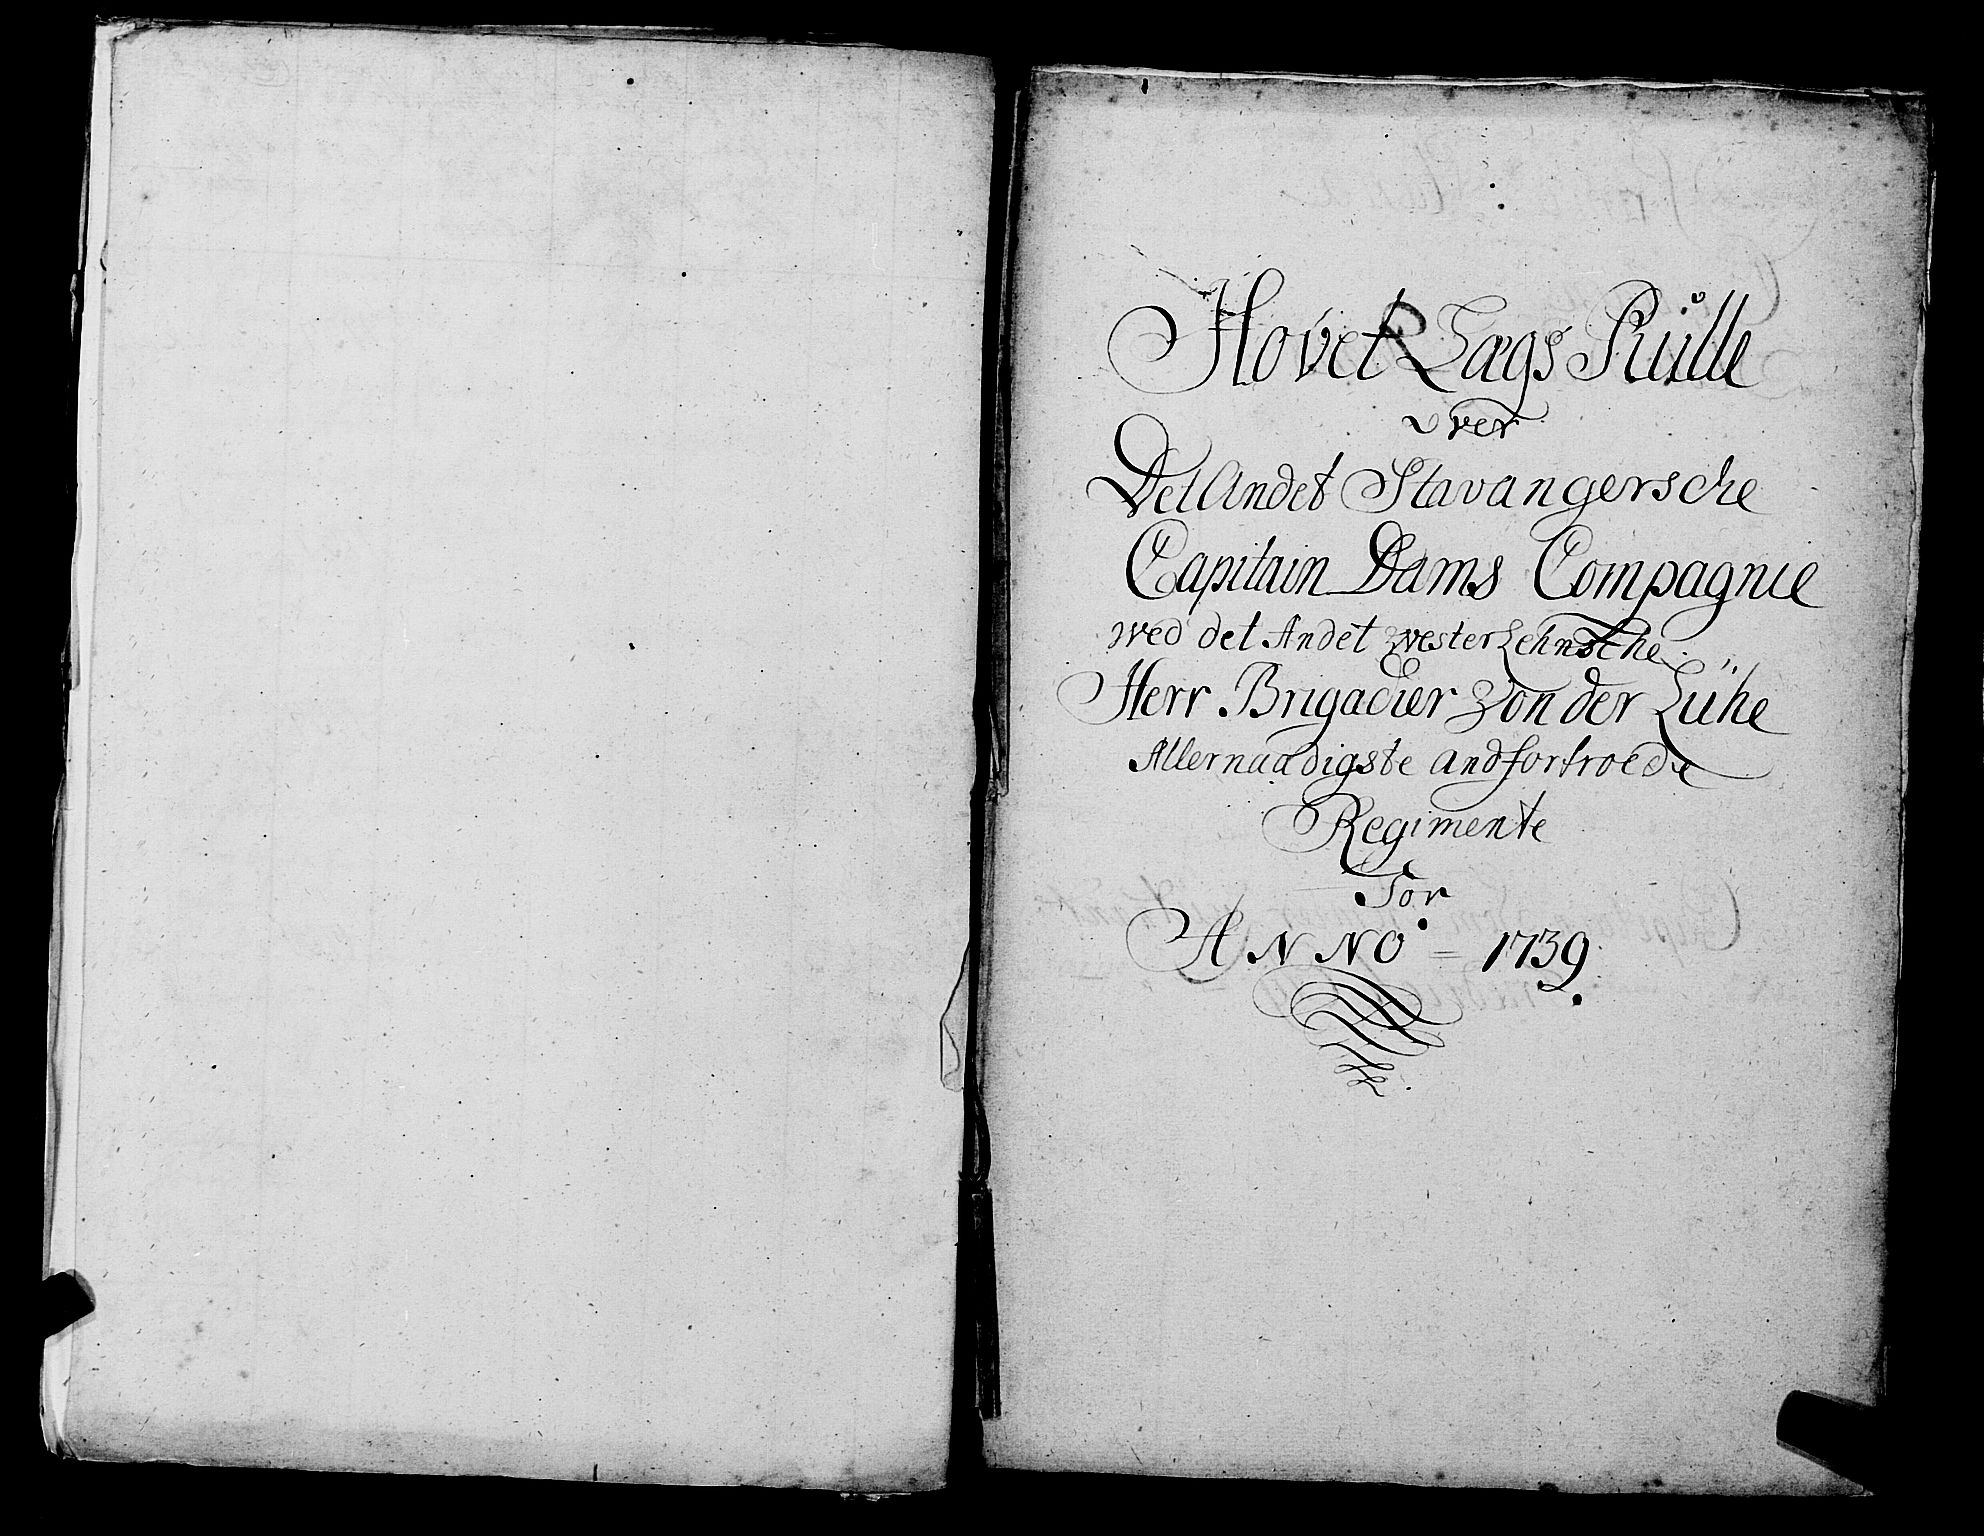 Hovet Lægs Rulle
over
Det Andet Stavangersche
Capitain Dams Compagnie
ved det Andet Vesterlehnsche
Herr Brigadier Von der Lühe
Allernaadigste Andfortroede
Regimente
For
ANNO = 1739.